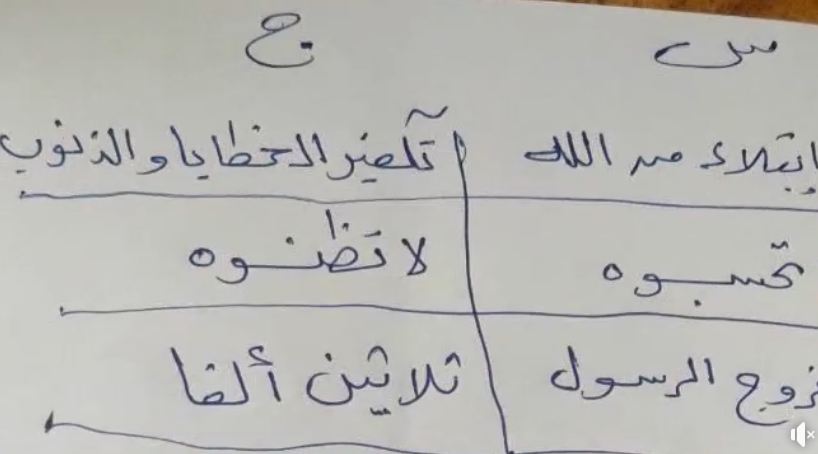 س ج
ابتلاء من الله تكفير الخطايا والذنوب
تحسبوه لا تظنوه
زوج الرسول ثلاثين ألفا